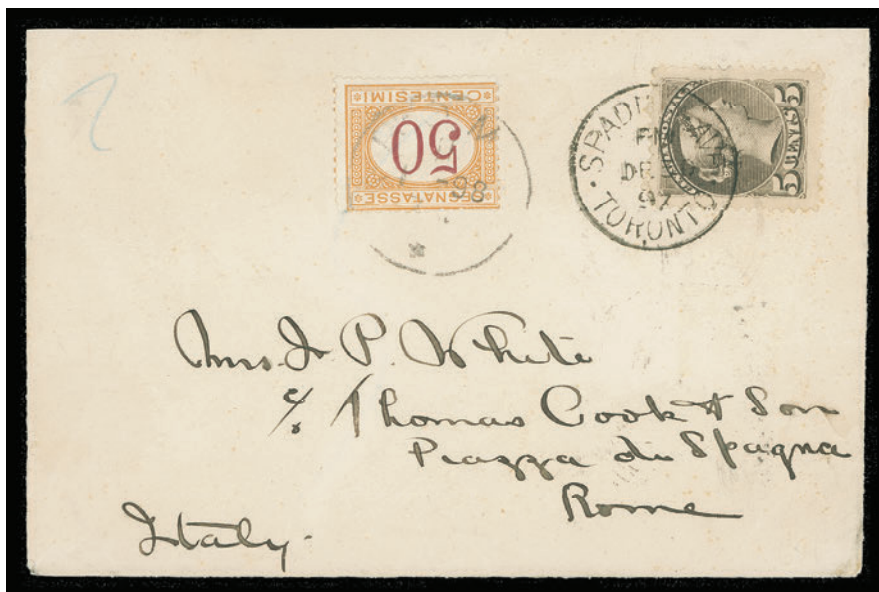 CENTESIMI
50
SEGNATASSE
98
SPADINA
PM
DE
97
TORONTO
5c
5c
Mrs. J. P. White
c/o Thomas Cook & Son
Piazza di Spagna
Rome
Italy.